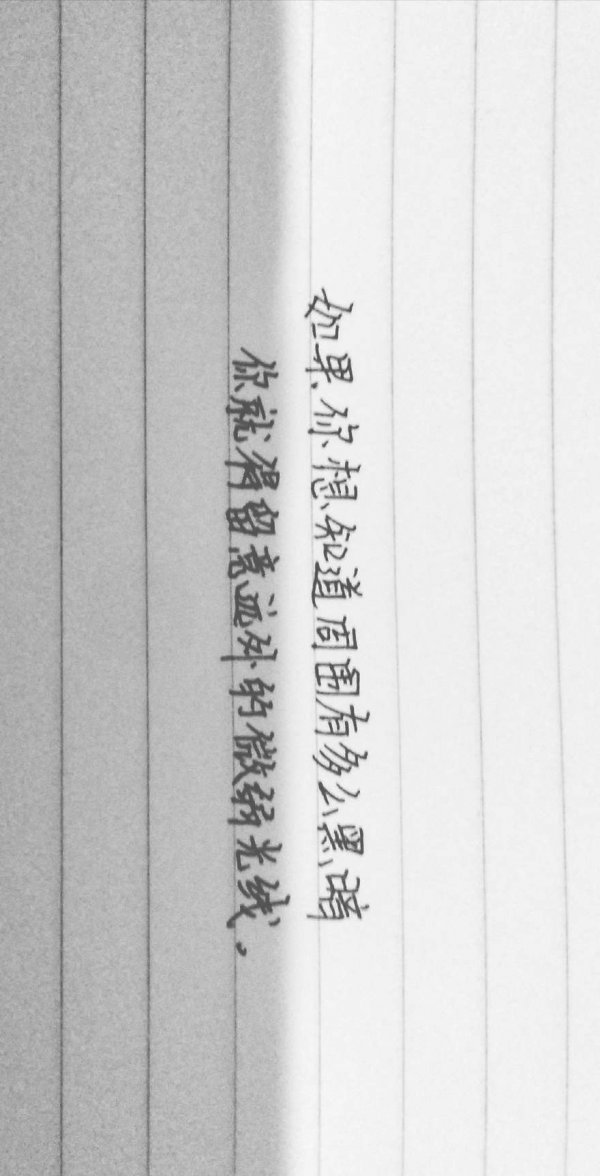 如果你想知道周围有多么黑暗
你就得留意远处的微弱光线.